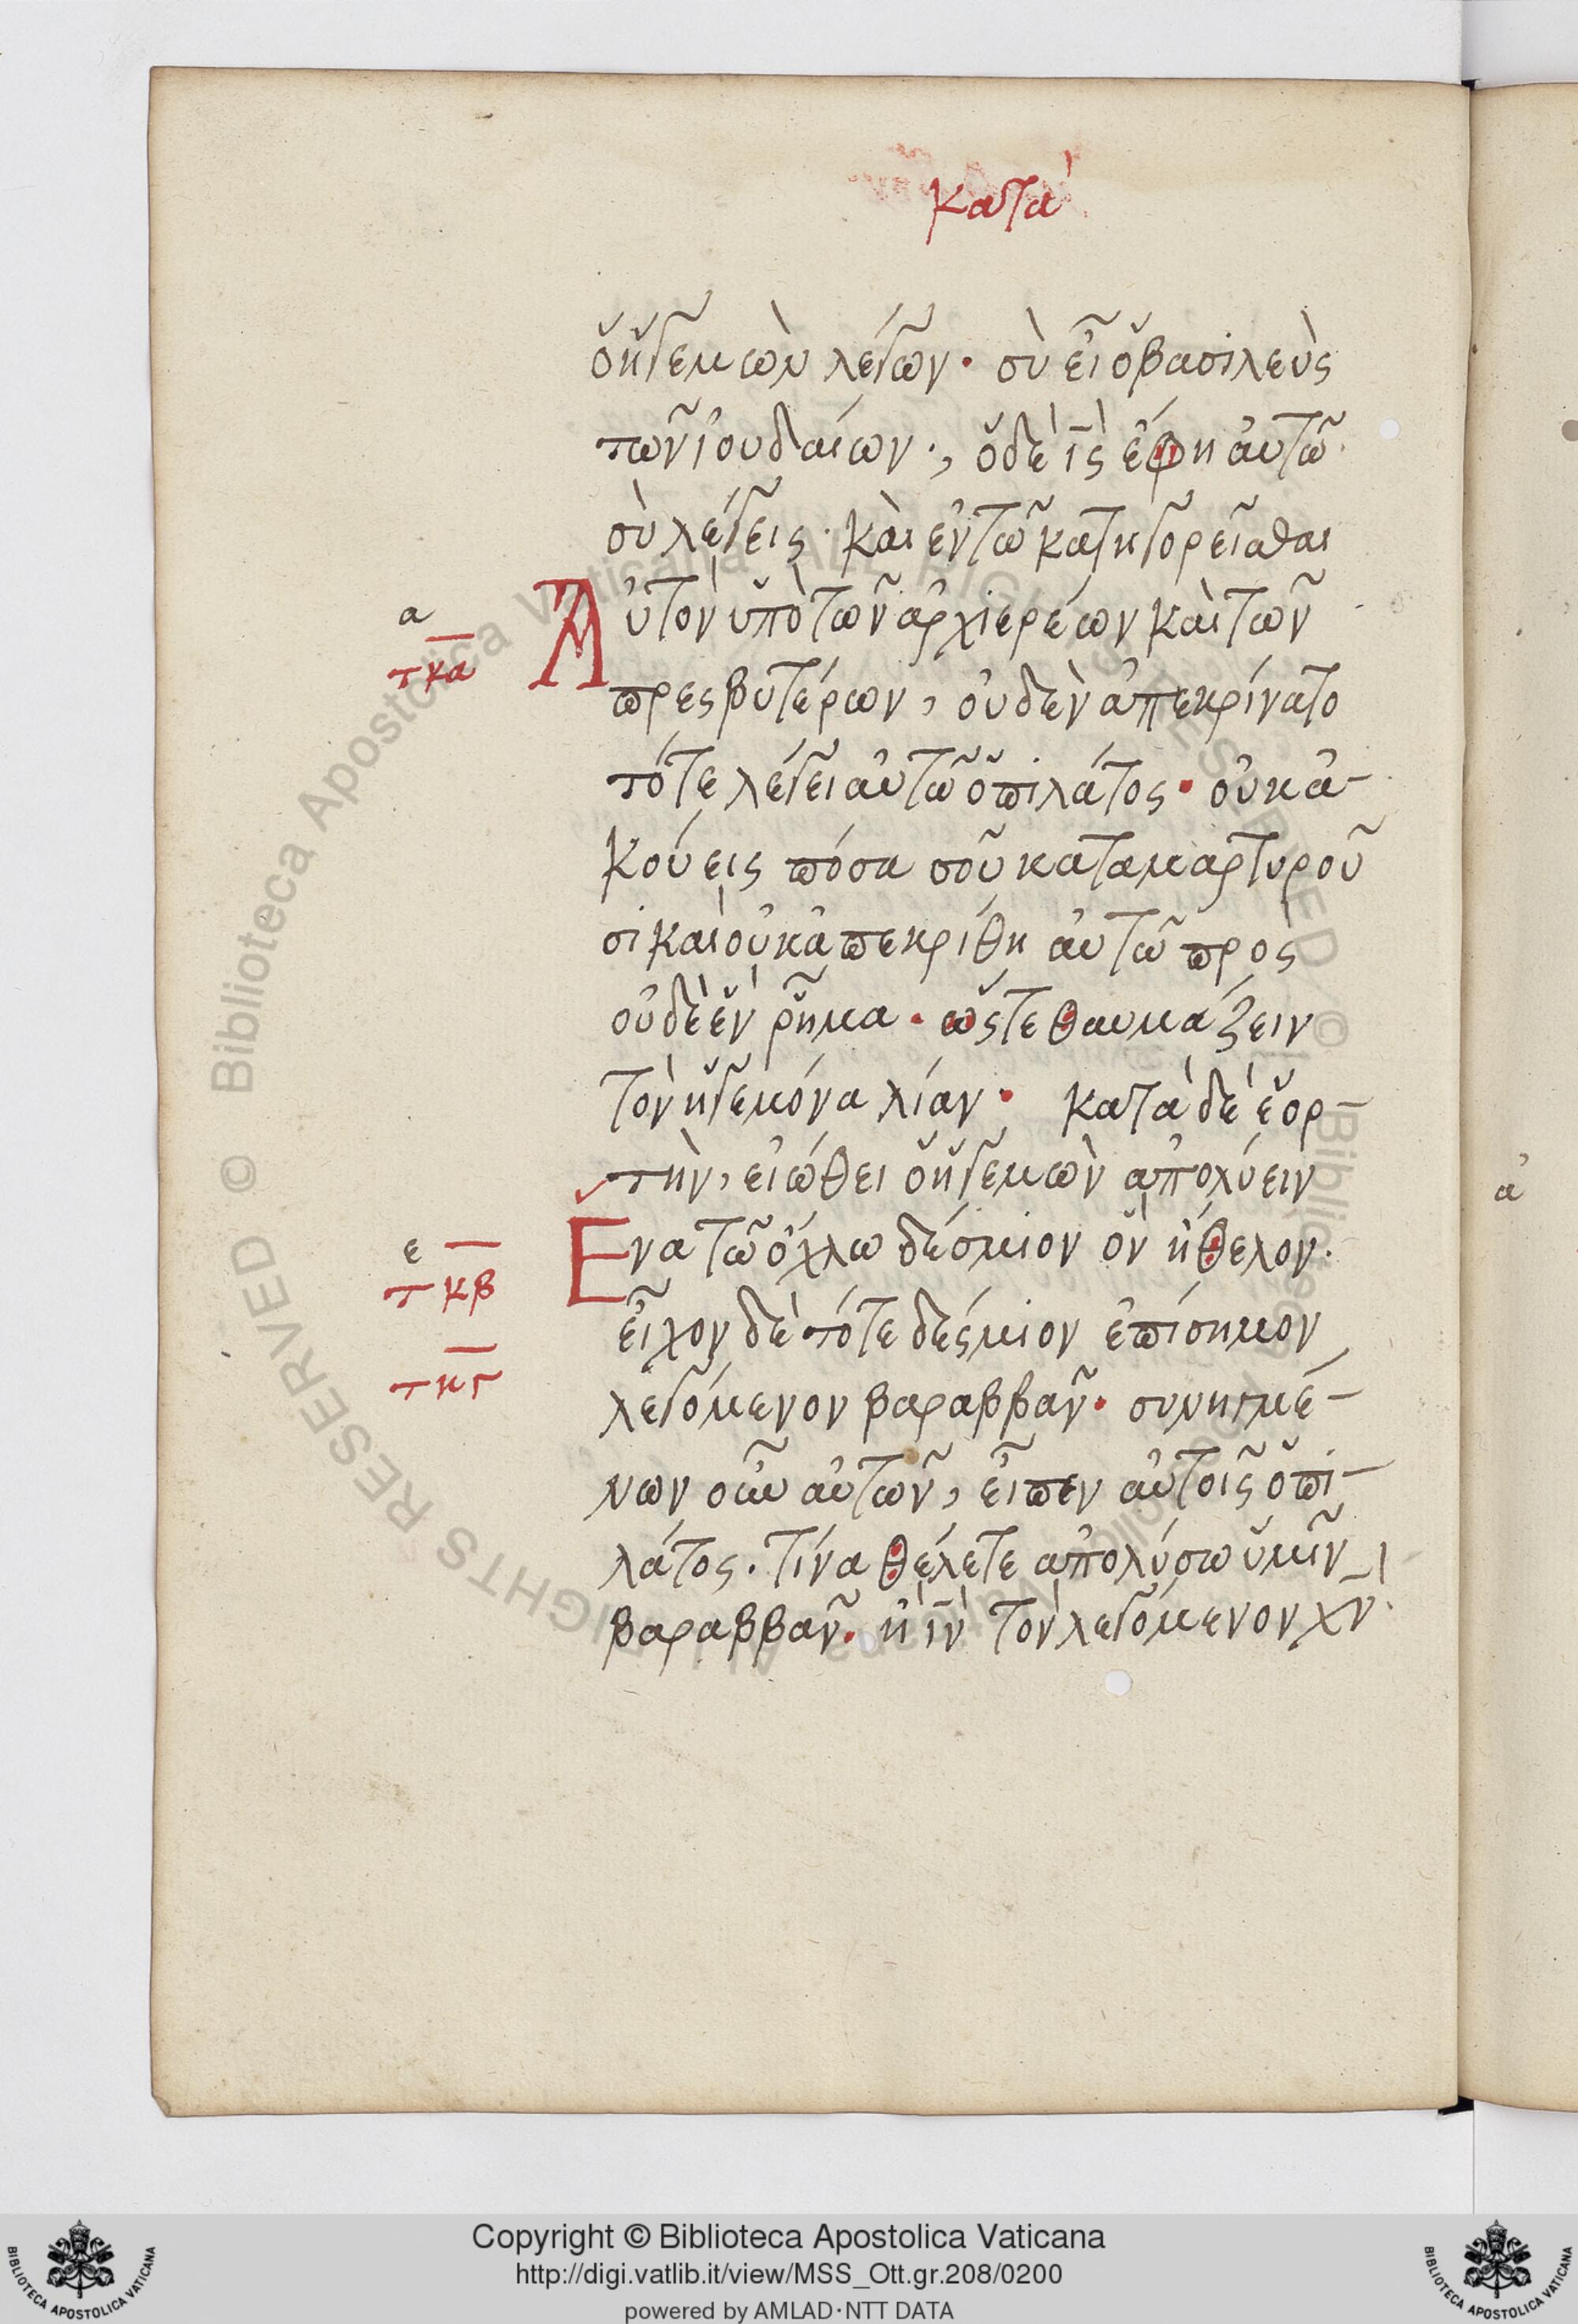 κατὰ
ὁ ἡγεμὼν λέγων· σὺ εἶ ὁ βασιλεὺς
τῶν ἰουδαίων·, ὁ δὲ ις ἔφη αὐτῶ·
σὺ λέγεις· καὶ ἐν τῶ κατηγορεῖσθαι
α Αὐτὸν ὑπὸ τῶν ἀρχιερέων καὶ τῶν
τκα
πρεσβυτέρων, οὐδὲν ἀπεκρίνατο
τότε λέγει αὐτῶ ὁ πιλάτος· οὐκ ἀ-
κούεις πόσα σοῦ καταμαρτυροῦ
σι καὶ οὐκ ἀπεκρίθη αὐτῶ πρὸς
οὐδὲ ἓν ῥῆμα· ὥστε θαυμάζειν
τὸν ἡγεμόνα λίαν· κατὰ δὲ ἑορ-
τὴν, εἰώθει ὁ ἡγεμὼν ἀπολύειν
ε Ενα τῶ ὄχλω δέσμιον ὃν ἤθελον·
τκβ
εἶχον δὲ τότε δέσμιον ἐπίσημον
τκγ
λεγόμενον βαραββᾶν· συνηγμέ-
νων οὖν αὐτῶν, εἶπεν αὐτοῖς ὁ πι-
λάτος· τίνα θέλετε ἀπολύσω ὑμῖν
βαραββᾶν· ἢ ιν τὸν λεγόμενον χν·
ἀ
Copyright © Biblioteca Apostolica Vaticana
http://digi.vatlib.it/view/MSS_Ott.gr.208/0200
powered by AMLAD·NTT DATA
BIBLIOTECA APOSTOLICA VATICANA
BIBLIOTECA APOSTOLICA VATICANA